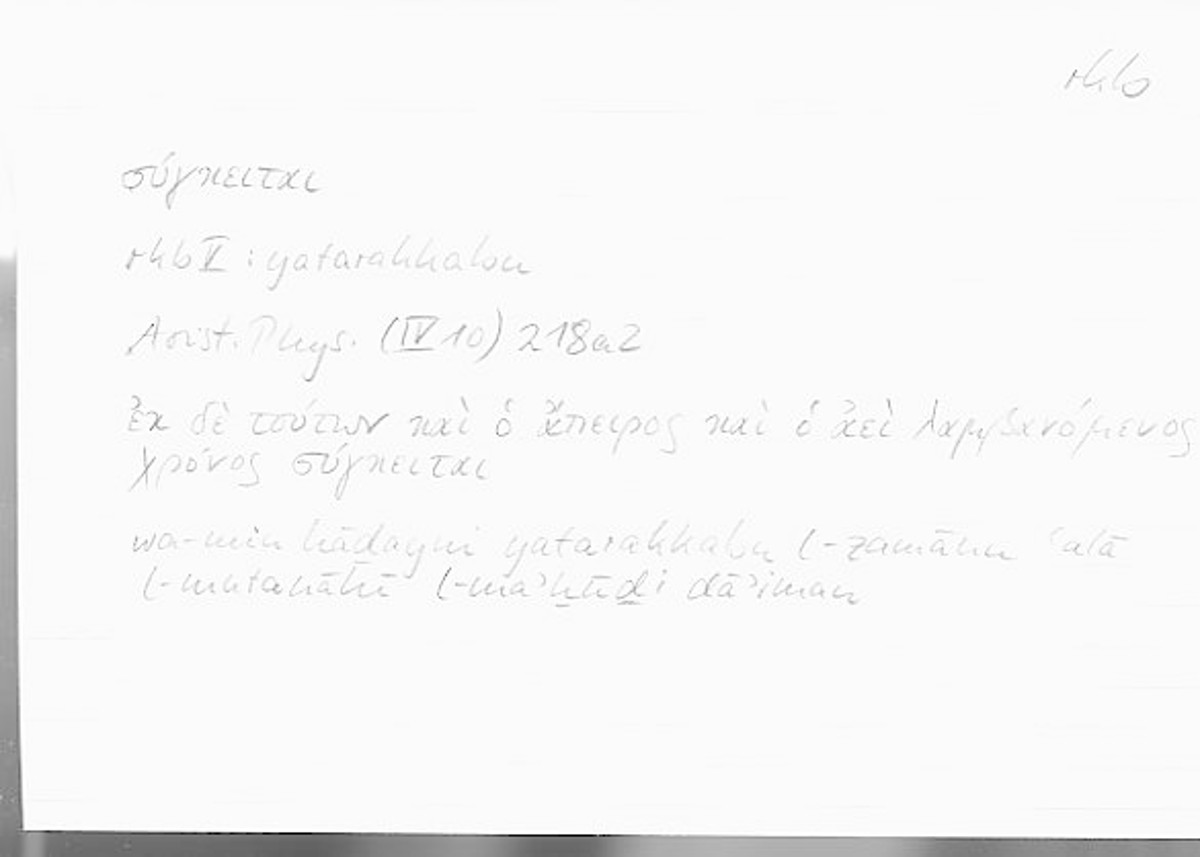 rkb
σύγκειται
rkb V : yatarakkabu
Arist. Phys. (IV 10) 218a2
ἐκ δὲ τούτων καὶ ὁ ἄπειρος καὶ ὁ ἀεὶ λαμβανόμενος
χρόνος σύγκειται
wa-min hāḏayni yatarakkabu l-zamānu ʿalā
l-mutanāhī l-maʾḫūḏi dāʾiman